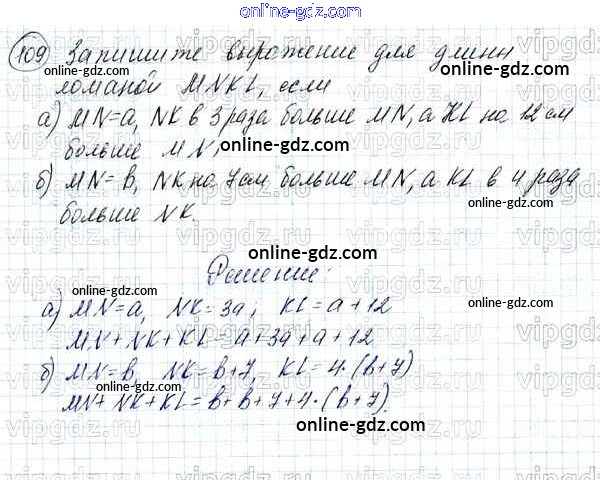 online-gdz.com
109 Запишите выражение для длины
ломаной MNKL, если
а) MN=a, NK в 3 раза больше MN, а KL на 12 см
больше MN,
б) MN=в, NK на 7 см больше MN, а KL в 4 раза
больше NK.
Решение:
а) MN=a, NK=3a; KL=a+12
MN+NK+KL=a+3a+a+12
б) MN=в, NK=в+7, KL=4·(в+7)
MN+NK+KL=в+в+7+4·(в+7).
online-gdz.com
online-gdz.com
online-gdz.com
online-gdz.com
online-gdz.com
online-gdz.com
online-gdz.com
online-gdz.com
online-gdz.com
online-gdz.com